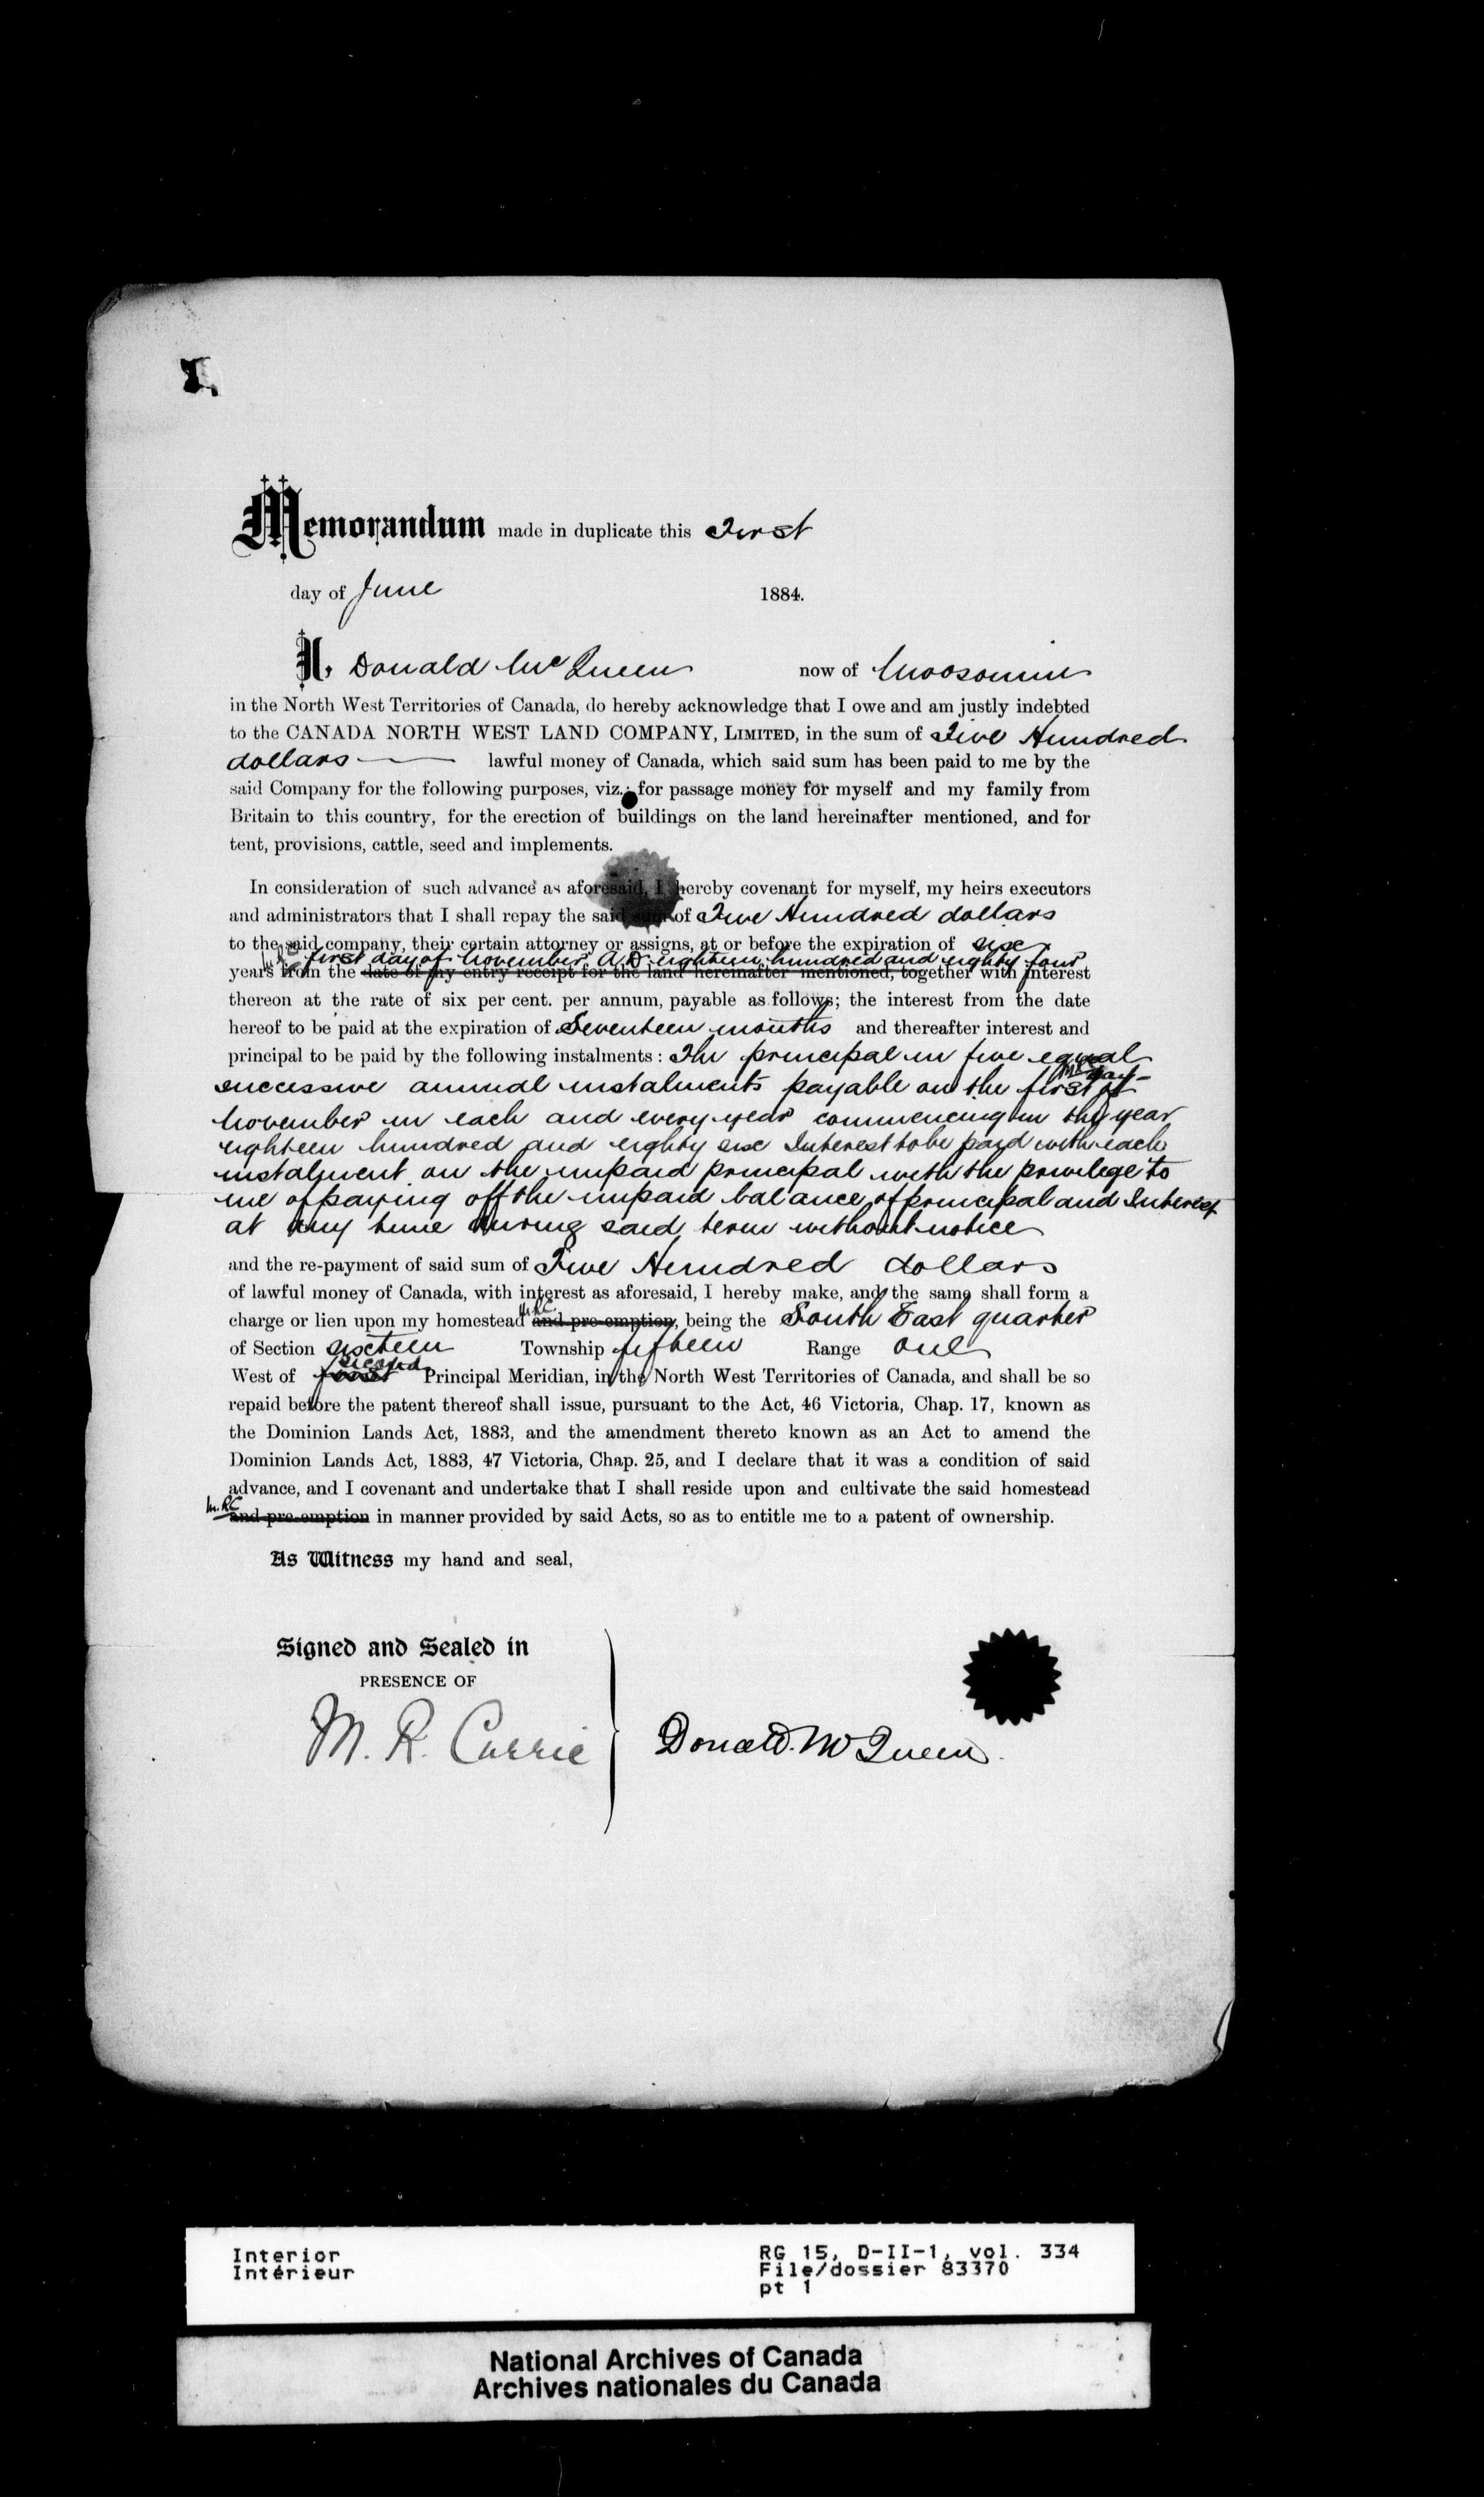 Memorandum made in duplicate this First
day of June 1884.
I, Donald McQueen now of Moosomin
in the North West Territories of Canada, do hereby acknowledge that I owe and am justly indebted
to the CANADA NORTH WEST LAND COMPANY, LIMITED, in the sum of Five Hundred
dollars lawful money of Canada, which said sum has been paid to me by the
said Company for the following purposes, viz.: for passage money for myself and my family from
Britain to this country, for the erection of buildings on the land hereinafter mentioned, and for
tent, provisions, cattle, seed and implements.
In consideration of such advance as aforesaid, I hereby covenant for myself, my heirs executors
and administrators that I shall repay the said sum of Five Hundred dollars
to the said company, their certain attorney or assigns, at or before the expiration of six
first day of November A.D. eighteen hundred and eighty four
years from the date of my entry receipt for the land hereinafter mentioned, together with interest
thereon at the rate of six per cent. per annum, payable as follows; the interest from the date
hereof to be paid at the expiration of Seventeen months and thereafter interest and
principal to be paid by the following instalments: The principal in five equal
M.R.C. day
successive annual instalments payable on the first of
November in each and every year commencing in the year
eighteen hundred and eighty six Interest to be paid with each
instalment on the unpaid principal with the privilege to
me of paying off the unpaid balance of principal and Interest
at any time during said term without notice
and the re-payment of said sum of Five Hundred dollars
of lawful money of Canada, with interest as aforesaid, I hereby make, and the same shall form a
M.R.C.
charge or lien upon my homestead and pre-emption, being the South East quarter
of Section sixteen Township fifteen Range one
second
West of first Principal Meridian, in the North West Territories of Canada, and shall be so
repaid before the patent thereof shall issue, pursuant to the Act, 46 Victoria, Chap. 17, known as
the Dominion Lands Act, 1883, and the amendment thereto known as an Act to amend the
Dominion Lands Act, 1883, 47 Victoria, Chap. 25, and I declare that it was a condition of said
advance, and I covenant and undertake that I shall reside upon and cultivate the said homestead
M.R.C.
and pre-emption in manner provided by said Acts, so as to entitle me to a patent of ownership.
As Witness my hand and seal,
Signed and Sealed in
PRESENCE OF
M. R. Currie Donald McQueen.
Interior RG 15, D-II-1, vol. 334
Intérieur File/dossier 83370
pt 1
National Archives of Canada
Archives nationales du Canada